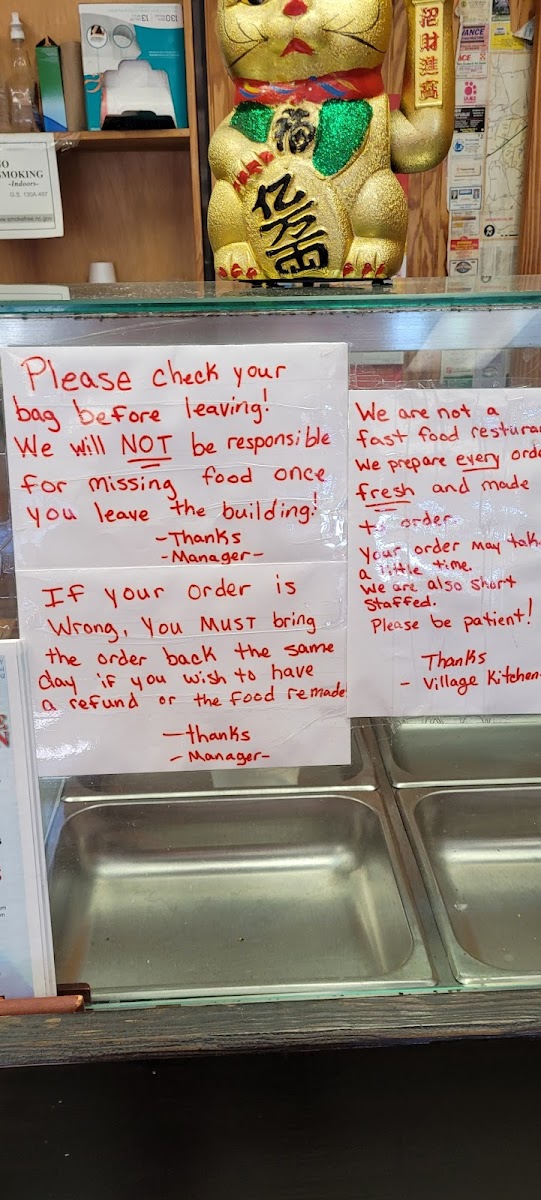 招財進寶
福
130
13
NO
SMOKING
-Indoors-
G.S. 130A-497
www.smokefree.nc.gov
Please check your
bag before leaving!
We will NOT be responsible
for missing food once
you leave the building!
-Thanks
-Manager-
If your order is
wrong, you MUST bring
the order back the same
day if you wish to have
a refund or the food remade
-thanks
-Manager-
We are not a
fast food resturan
We prepare every orde
fresh and made
to order.
Your order may take
a little time.
We are also short
staffed.
Please be patient!
Thanks
- Village Kitchen-